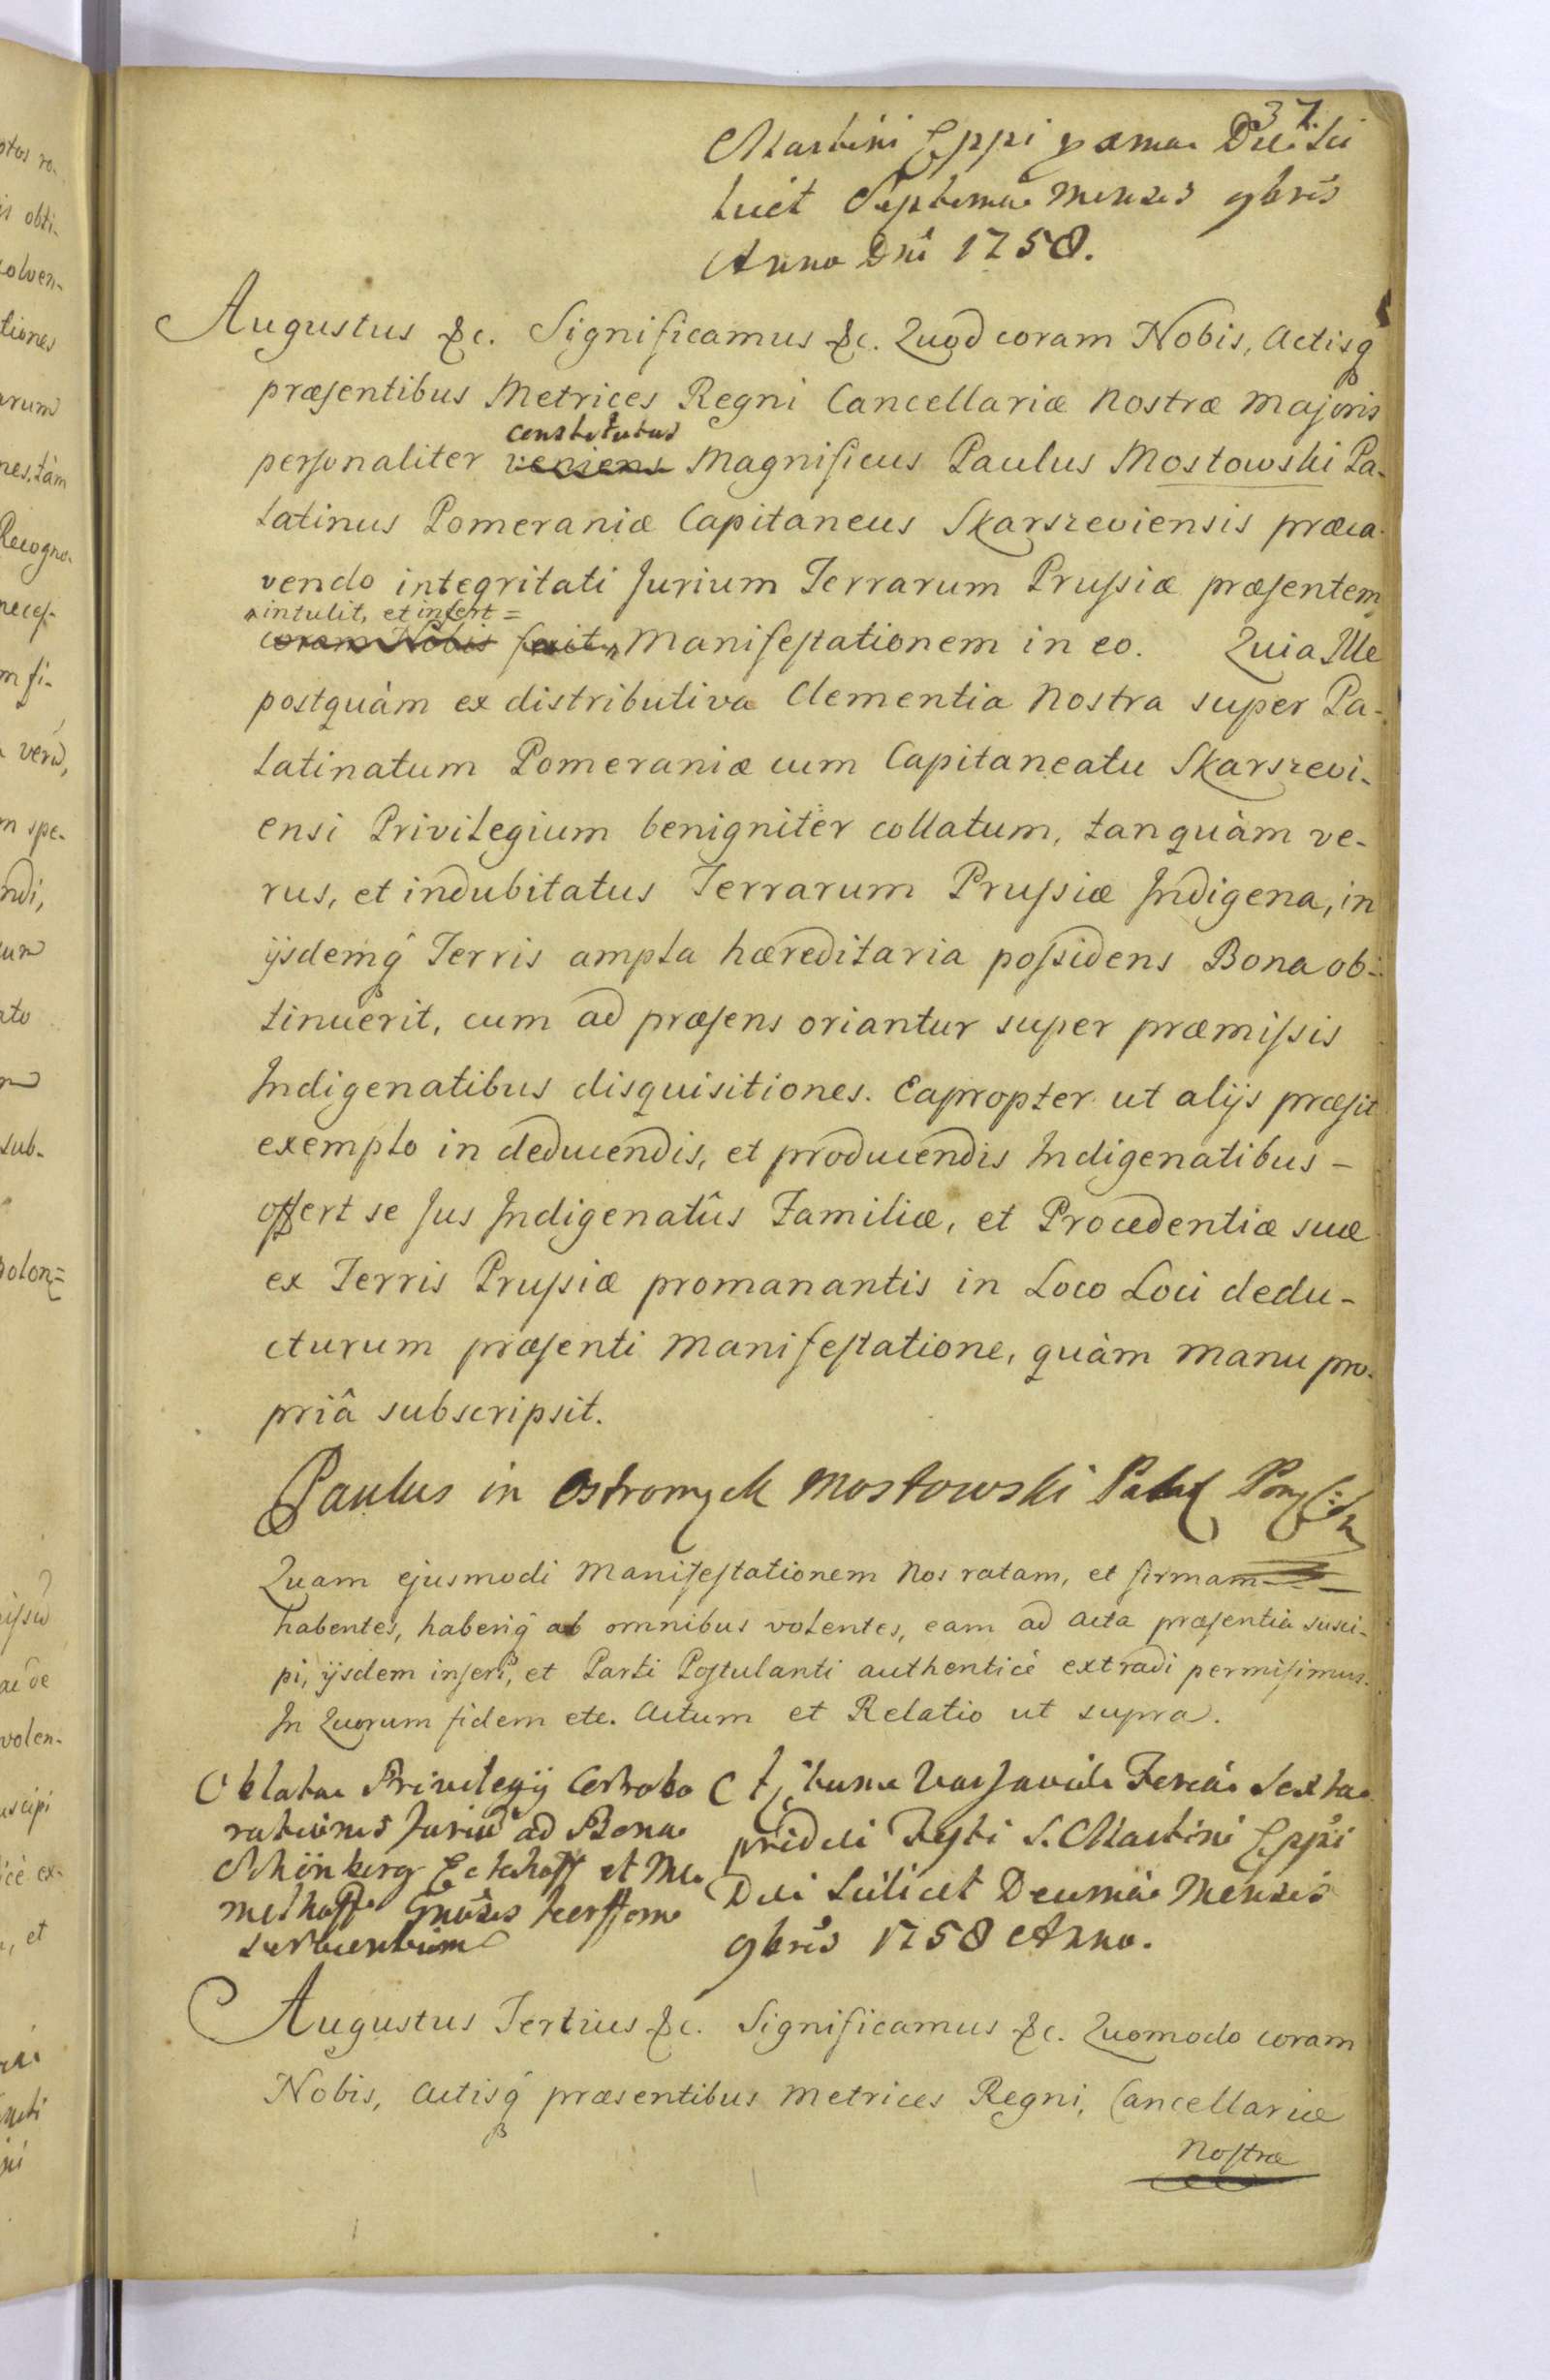 37.
Martini Eppi proxima Die sci
licet Septima Mensis 9bris
Anno Dni 1758.
Augustus &c. Significamus &c. Quod coram Nobis, Actisq
præsentibus Metrices Regni Cancellariæ Nostræ Majoris
constitutus
personaliter veniens Magnificus Paulus Mostowski Pa-
latinus Pomeraniæ Capitaneus Skarszeviensis præca-
vendo integritati Jurium Terrarum Prussiæ præsentem
intulit, et infert =
coram Nobis Manifestationem in eo. Quia Ille
postquàm ex distributiva Clementia Nostra super Pa-
latinatum Pomeraniæ cum Capitaneatu Skarszevi-
ensi Privilegium benigniter collatum, tanquàm ve-
rus, et indubitatus Terrarum Prussiæ Indigena, in
ijsdemq Terris ampla hæreditaria possidens Bona ob-
tinuerit, cum ad præsens oriantur super præmissis
Indigenatibus disquisitiones. Eapropter ut alijs præsit
exemplo in deducendis, et producendis Indigenatibus -
offert se Jus Indigenatûs Familiæ, et Procedentiæ suæ
ex Terris Prussiæ promanantis in Loco Loci dedu-
cturum præsenti Manifestatione, quàm manu pro-
priâ subscripsit.
Paulus in Ostromyck Mostowski
Quam ejusmodi Manifestationem Nos ratam, et firmam
habentes, haberiq ab omnibus volentes, eam ad Acta præsentia susci-
pi, ijsdem inseri, et Parti Postulanti authenticè extradi permisimus.
In Quorum fidem etc. Actum et Relatio ut supra.
Oblatae Privilegij Corrobo
rationis Juriū ad Bona
Schönberg Eckhoff et Me
melhoff Gnosis
servientium
Actum Varsaviæ Feria Sexta
pridie Festi S. Martini Eppi
Die Scilicet Decima Mensis
9bris 1758 Anno.
Augustus Tertius &c. Significamus &c. Quomodo coram
Nobis, Actisq præsentibus Metrices Regni, Cancellariæ
Nostræ